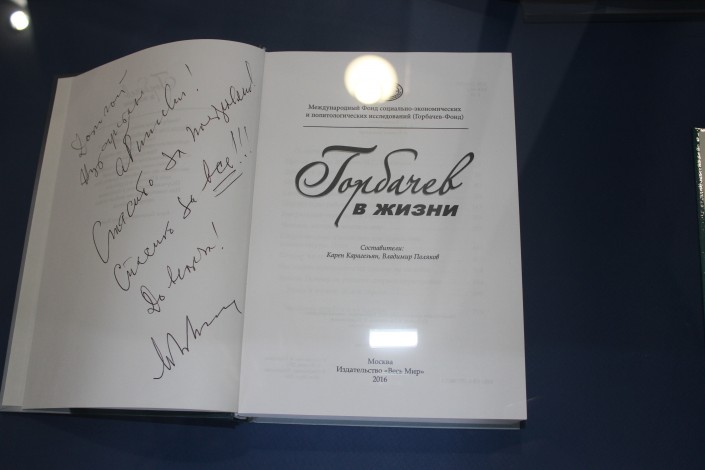 Дорогой
Нурсултан
Абишевич!
Спасибо за поздравления
Спасибо за все!!!
До встречи!
Международный Фонд социально-экономических
и политологических исследований (Горбачев-Фонд)
Горбачев
в жизни
Составители:
Карен Карагезьян, Владимир Поляков
Москва
Издательство «Весь Мир»
2016